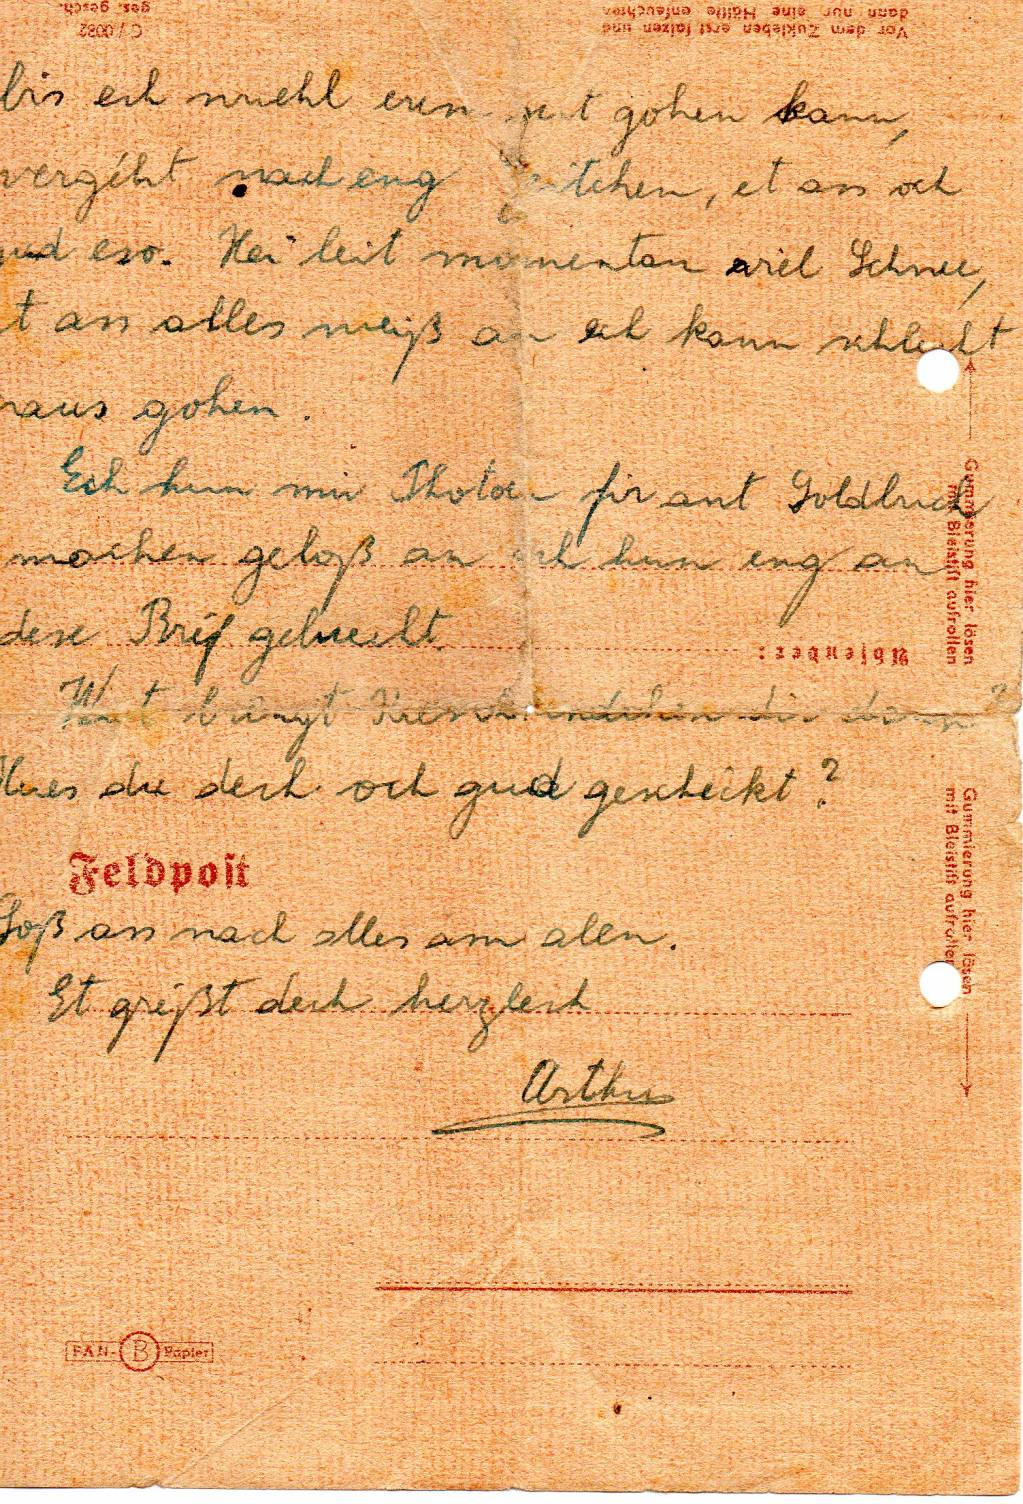 C / 0082
ges. gesch.
Vor dem Zukleben erst falzen und
dann nur eine Hälfte anfeuchten
bis ech nuehl eren gut gohen kann,
vergéht nach eng Zeitchen, et ass och
gud eso. Hei leit momentan viel Schnee,
t ass alles weiß an ech kann schlecht
raus gohen.
Ech hun mir Photoen fir ant Goldbuch
machen geloß an ech hun eng an
dese Bréif geluecht.
Wat bréngt Kreschkindchen dir dann?
Hues du dech och gud geschéckt?
Absender:
Gummierung hier lösen
mit Bleistift aufrollen
Gummierung hier lösen
mit Bleistift aufrollen
Feldpost
Soß ass nach alles am alen.
Et gréißt dech herzlech
Arthur
FAN- B Papier